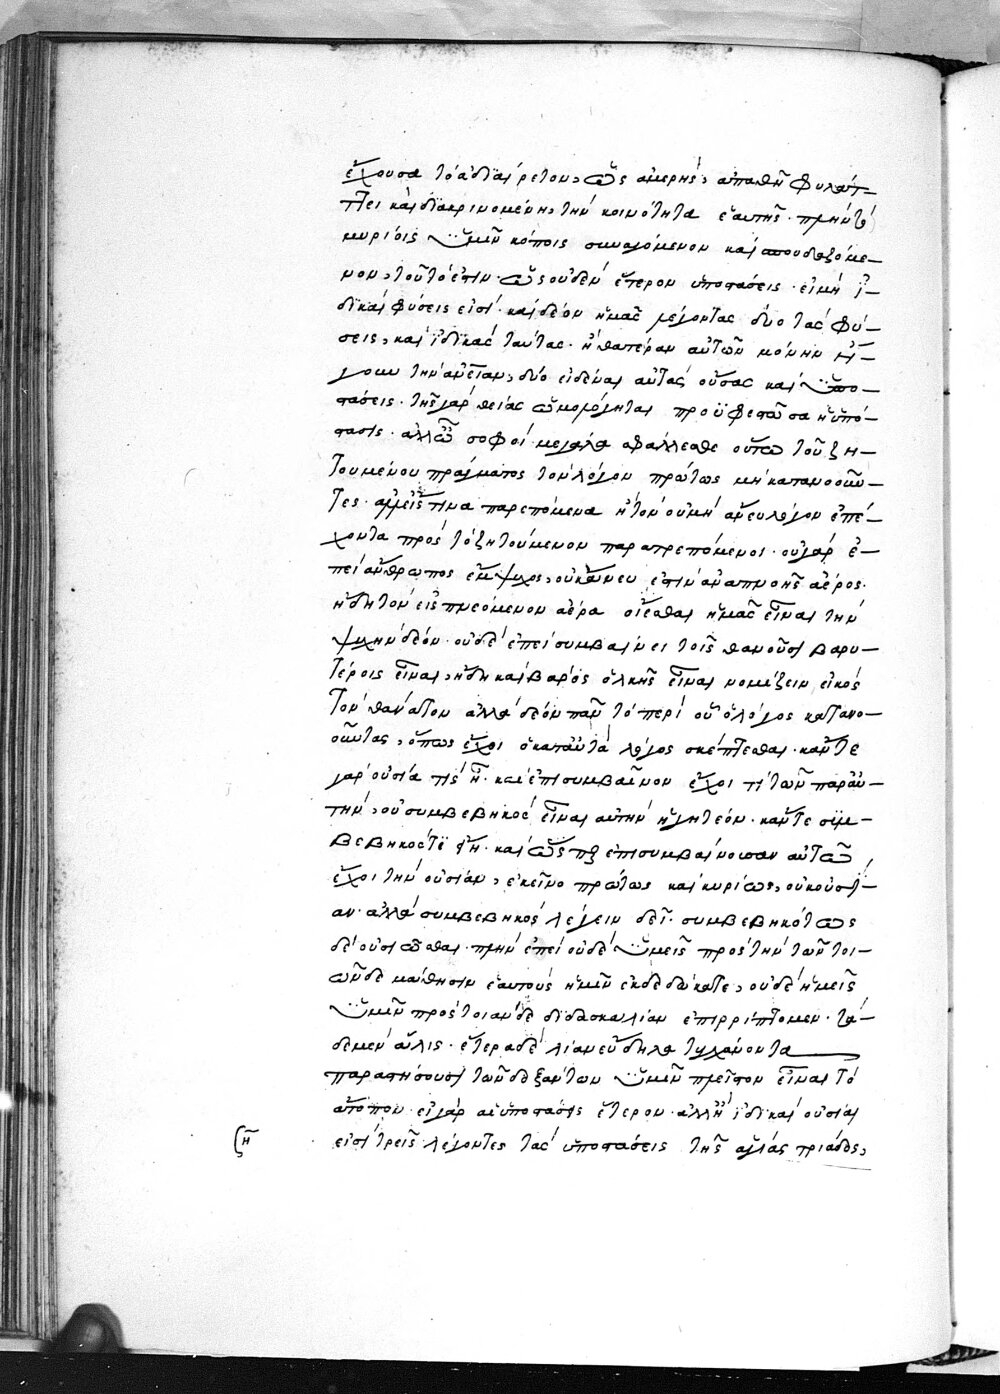 ἔχουσα τὸ ἀδιαίρετον, ὡς ἀμερὴς, ἀπαθῆ φυλάτ-
τει καὶ διακρινομένη, τὴν κοινότητα ἑαυτῆς· πλὴν τὸ
μυρίοις ὑμῖν κόποις συναγόμενον καὶ σπουδαζόμε-
νον, τοῦτό ἐστιν· ὡς οὐδὲν ἕτερον ὑποστάσεις· εἰ μὴ ἰ-
δικαὶ φύσεις εἰσί· καὶ δέον ἡμᾶς λέγοντας δύο τὰς φύ-
σεις, καὶ ἰδικὰς ταύτας· ἢ θατέραν αὐτῶν μόνην
τὴν δύο εἰδέναι αὐτὰς οὔσας καὶ ὑπο-
στάσεις· τῆς γὰρ θείας ὡμολόγηται προϋφεστῶσα ἡ ὑπό-
στασις· ἀλλ' ὦ σοφοὶ μεγάλα σφάλλεσθε οὕτω τοῦ ζη-
τουμένου πράγματος τὸν λόγον πρώτως μὴ κατανοοῦν-
τες· τινα παρεπόμενα ἢ τὸν οὐ μὴ ἄνευ λόγον ἐπέ-
χοντα πρὸς τὸ ζητούμενον παρατρεπόμενοι· οὐ γὰρ ἐ-
πεὶ ἄνθρωπος ἔμψυχος, οὐκ ἄνευ ἐστὶν ἀναπνοῆς ἀέρος·
ἤδη τὸν εἰσπνεόμενον ἀέρα οἴεσθαι ἡμᾶς εἶναι τὴν
ψυχὴν δέον· οὐδ' ἐπεὶ συμβαίνει τοῖς θανοῦσι βαρυ-
τέροις εἶναι, ἤδη καὶ βάρος ὁλκῆς εἶναι νομίζειν εἰκὸς
τὸν θάνατον ἀλλὰ δέον πᾶν τὸ περὶ οὗ ὁ λόγος κατανο-
οῦντας, ὅπως ἔχοι ὁ κατ' αὐτὰ λόγος σκέπτεσθαι· κἄν τε
γὰρ οὐσία τίς ᾖ· καὶ ἐπισυμβαῖνον ἔχοι τὶ τῶν παρ' αὐ-
τὴν, οὐ συμβεβηκὸς εἶναι αὐτὴν ἡγητέον· κἄν τε συμ-
βεβηκός τι ᾖ· καὶ ὥσπερ ἐπισυμβαίνουσαν αὐτῶ
ἔχοι τὴν οὐσίαν, ἐκεῖνο πρώτως καὶ κυρίως, οὐκ οὐσί-
αν· ἀλλὰ συμβεβηκὸς λέγειν δεῖ· συμβεβηκότως
δὲ οὐσιῶσθαι· πλὴν ἐπεὶ οὐδὲ ὑμεῖς πρὸς τὴν τῶν τοι-
ῶνδε μάθησιν ἑαυτοὺς ἡμῖν ἐκδεδώκατε, οὐδὲ ἡμεῖς
ὑμῖν πρὸς τοιάνδε διδασκαλίαν ἐπιρρίπτομεν· τά-
δε μὲν ἅλις· ἕτερα δὲ λίαν εὔδηλα τυγχάνοντα
παραστήσουσι τῶν δεξάντων ὑμῖν πλεῖστον εἶναι τὸ
ἄτοπον· εἰ γὰρ αἱ ὑποστάσεις ἕτερον· ἀλλ' ἢ ἰδικαὶ οὐσίαι
εἰσὶ τρεῖς λέγοντες τὰς ὑποστάσεις τῆς ἁγίας τριάδος,